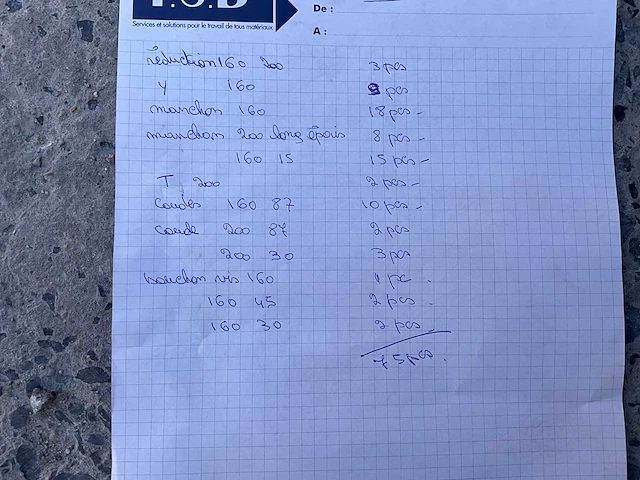 Services et solutions pour le travail de tous matériaux
De :
A :
réduction 160 200 3 pcs
y 160 pcs
manchon 160 18 pcs
manchon 200 long épais 8 pcs
160 15 15 pcs
T 200 2 pcs
coudes 160 87 10 pcs
coude 200 87 2 pcs
200 30 3 pcs
bouchon vis 160 1 pc
160 45 2 pcs
160 30 2 pcs
75 pcs.